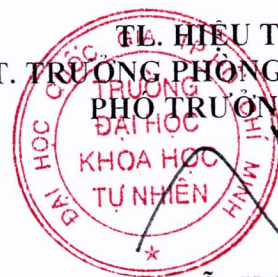 TL. HIỆU T
T. TRƯỞNG PHÒNG
PHÓ TRƯỞN
ĐẠI HỌC QUỐC GIA TP HỒ CHÍ MINH
TRƯỜNG
ĐẠI HỌC
KHOA HỌC
TỰ NHIÊN